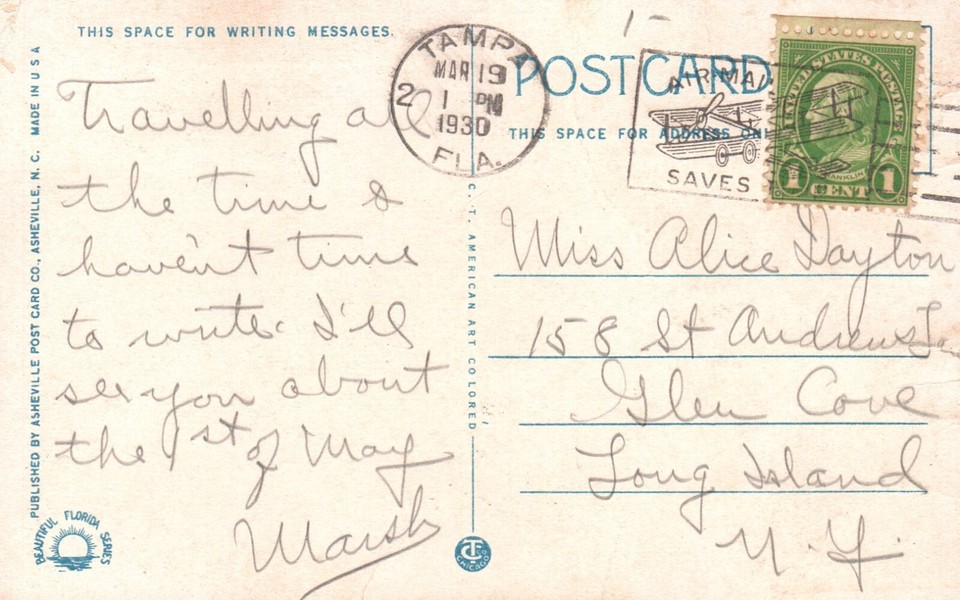 THIS SPACE FOR WRITING MESSAGES.
Travelling all
the time &
haven't time
to write. I'll
see you about
the 1st of May
Marsh
PUBLISHED BY ASHEVILLE POST CARD CO., ASHEVILLE, N. C. MADE IN U S A
BEAUTIFUL FLORIDA SERIES
C. T. AMERICAN ART COLORED
CT
CHICAGO
TAMPA
MAR 19
2 1 PM
1930
FLA.
POST CARD
THIS SPACE FOR ADDRESS ONLY
AIR MAIL
SAVES
UNITED STATES POSTAGE
FRANKLIN
1 CENT 1
Miss Alice Dayton
158 St Andrews
Glen Cove
Long Island
N.Y.